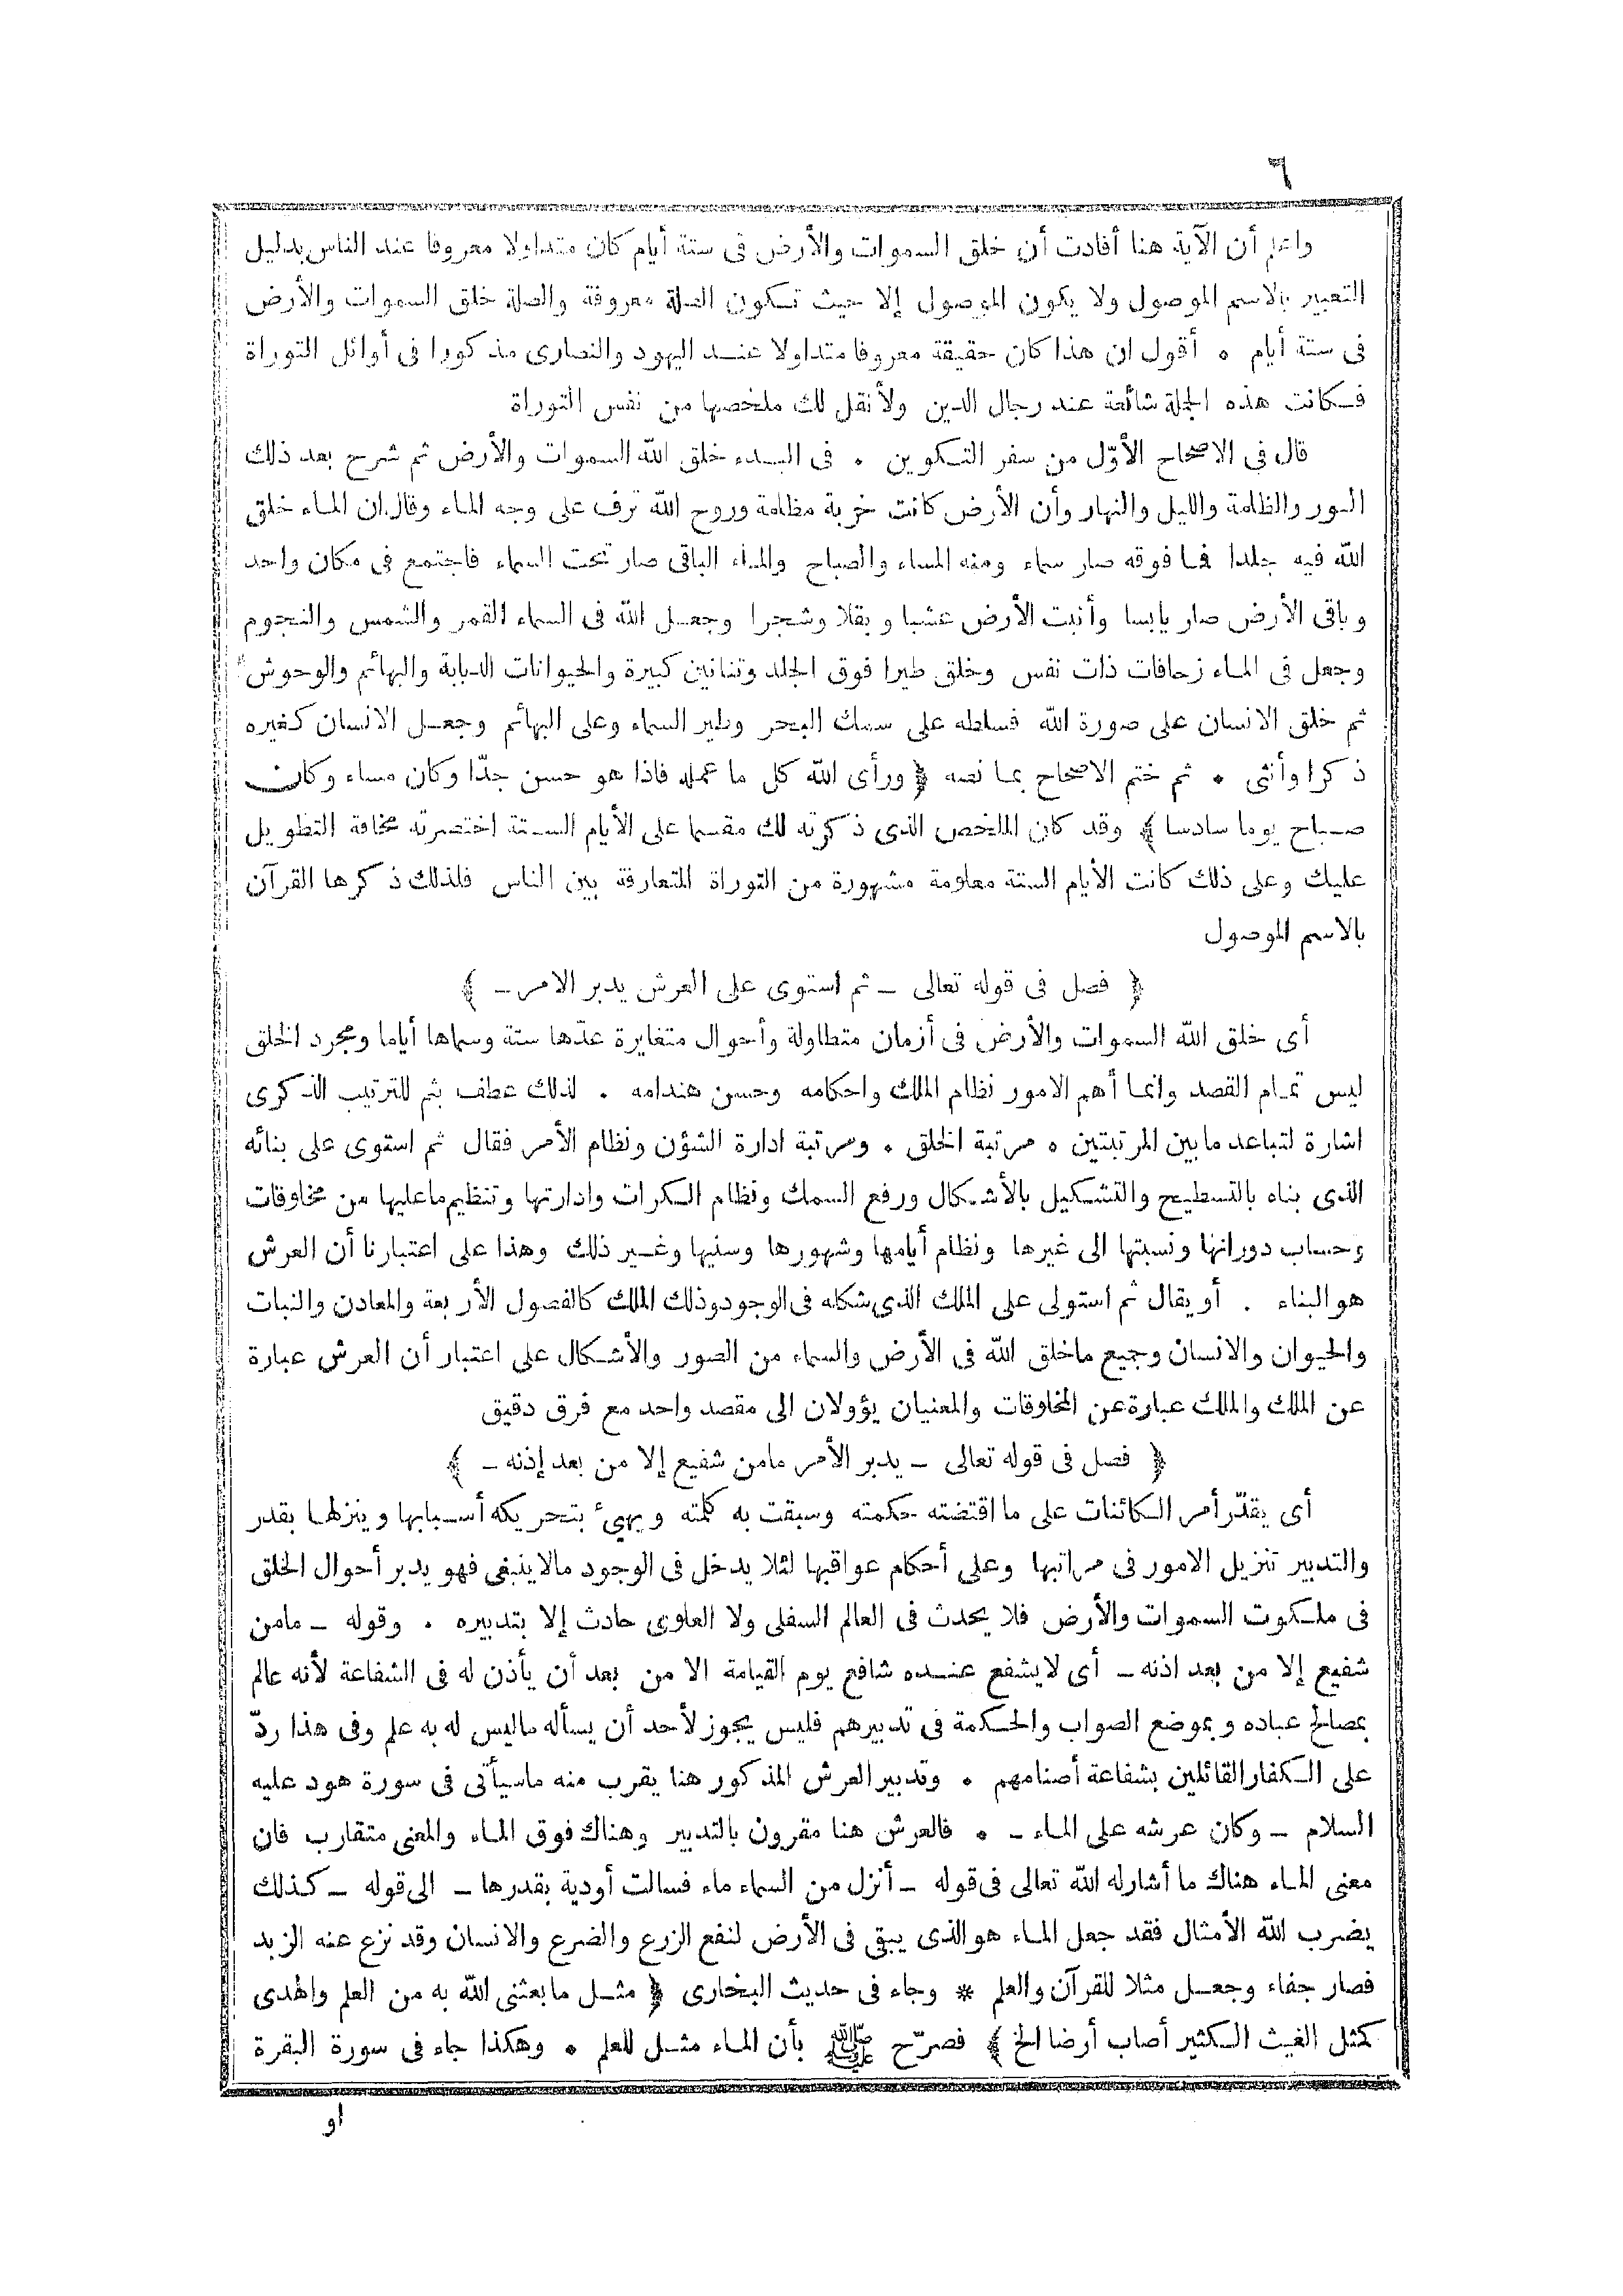 ٦
واعلم أن الآية هنا أفادت أن خلق السموات والأرض فى ستة أيام كان متداولا معروفا عند الناس بدليل
التعبير بالاسم الموصول ولا يكون الموصول إلا حيث تكون الصلة معروفة والصلة خلق السموات والأرض
فى ستة أيام ٠ أقول ان هذا كان حقيقة معروفا متداولا عند اليهود والنصارى مذكورا فى أوائل التوراة
فكانت هذه الجملة شائعة عند رجال الدين ولأنقل لك ملخصها من نفس التوراة
قال فى الاصحاح الأوّل من سفر التكوين ٠ فى البدء خلق الله السموات والأرض ثم شرح بعد ذلك
النور والظلمة والليل والنهار وأن الأرض كانت خربة مظلمة وروح الله ترف على وجه الماء وقال ان الماء خلق
الله فيه جلدا فما فوقه صار سماء ومنه المساء والصباح والماء الباقى صار تحت السماء فاجتمع فى مكان واحد
وباقى الأرض صار يابسا وأنبت الأرض عشبا وبقلا وشجرا وجعل الله فى السماء القمر والشمس والنجوم
وجعل فى الماء زحافات ذات نفس وخلق طيرا فوق الجلد وتنانين كبيرة والحيوانات الدبابة والبهائم والوحوش
ثم خلق الانسان على صورة الله فسلطه على سمك البحر وطير السماء وعلى البهائم وجعل الانسان كغيره
ذكرا وأنثى ٠ ثم ختم الاصحاح بما نصه ﴿ ورأى الله كل ما عمله فاذا هو حسن جدّا وكان مساء وكان
صباح يوما سادسا ﴾ وقد كان الملخص الذى ذكرته لك مقسما على الأيام الستة اختصرته مخافة التطويل
عليك وعلى ذلك كانت الأيام الستة معلومة مشهورة من التوراة المتعارفة بين الناس فلذلك ذكرها القرآن
بالاسم الموصول
﴿ فصل فى قوله تعالى ـ ثم استوى على العرش يدبر الامر ـ ﴾
أى خلق الله السموات والأرض فى أزمان متطاولة وأحوال متغايرة عدّها ستة وسماها أياما ومجرد الخلق
ليس تمام القصد وانما أهم الامور نظام الملك واحكامه وحسن هندامه ٠ لذلك عطف بثم للترتيب الذكرى
اشارة لتباعد مابين المرتبتين ٠ مرتبة الخلق ٠ ومرتبة ادارة الشؤن ونظام الأمر فقال ثم استوى على بنائه
الذى بناه بالتسطيح والتشكيل بالأشكال ورفع السمك ونظام الكرات وادارتها وتنظيم ماعليها من مخلوقات
وحساب دورانها ونسبتها الى غيرها ونظام أيامها وشهورها وسنيها وغير ذلك وهذا على اعتبارنا أن العرش
هو البناء ٠ أو يقال ثم استولى على الملك الذى شكله فى الوجود وذلك الملك كالفصول الأربعة والمعادن والنبات
والحيوان والانسان وجميع ماخلق الله فى الأرض والسماء من الصور والأشكال على اعتبار أن العرش عبارة
عن الملك والملك عبارة عن المخلوقات والمعنيان يؤولان الى مقصد واحد مع فرق دقيق
﴿ فصل فى قوله تعالى ـ يدبر الأمر مامن شفيع إلا من بعد إذنه ـ ﴾
أى يقدّر أمر الكائنات على ما اقتضته حكمته وسبقت به كلمته ويهيئ بتحريكه أسبابها وينزلها بقدر
والتدبير تنزيل الامور فى مراتبها وعلى أحكام عواقبها لئلا يدخل فى الوجود مالاينبغى فهو يدبر أحوال الخلق
فى ملكوت السموات والأرض فلا يحدث فى العالم السفلى ولا العلوى حادث إلا بتدبيره ٠ وقوله ـ مامن
شفيع إلا من بعد اذنه ـ أى لايشفع عنده شافع يوم القيامة الا من بعد أن يأذن له فى الشفاعة لأنه عالم
بمصالح عباده وبموضع الصواب والحكمة فى تدبيرهم فليس يجوز لأحد أن يسأله ماليس له به علم وفى هذا ردّ
على الكفار القائلين بشفاعة أصنامهم ٠ وتدبير العرش المذكور هنا يقرب منه ماسيأتى فى سورة هود عليه
السلام ـ وكان عرشه على الماء ـ ٠ فالعرش هنا مقرون بالتدبير وهناك فوق الماء والمعنى متقارب فان
معنى الماء هناك ما أشار له الله تعالى فى قوله ـ أنزل من السماء ماء فسالت أودية بقدرها ـ الى قوله ـ كذلك
يضرب الله الأمثال فقد جعل الماء هو الذى يبقى فى الأرض لنفع الزرع والضرع والانسان وقد نزع عنه الزبد
فصار جفاء وجعل مثلا للقرآن والعلم * وجاء فى حديث البخارى ﴿ مثل مابعثنى الله به من العلم والهدى
كمثل الغيث الكثير أصاب أرضا الخ ﴾ فصرّح ﷺ بأن الماء مثل للعلم ٠ وهكذا جاء فى سورة البقرة
او